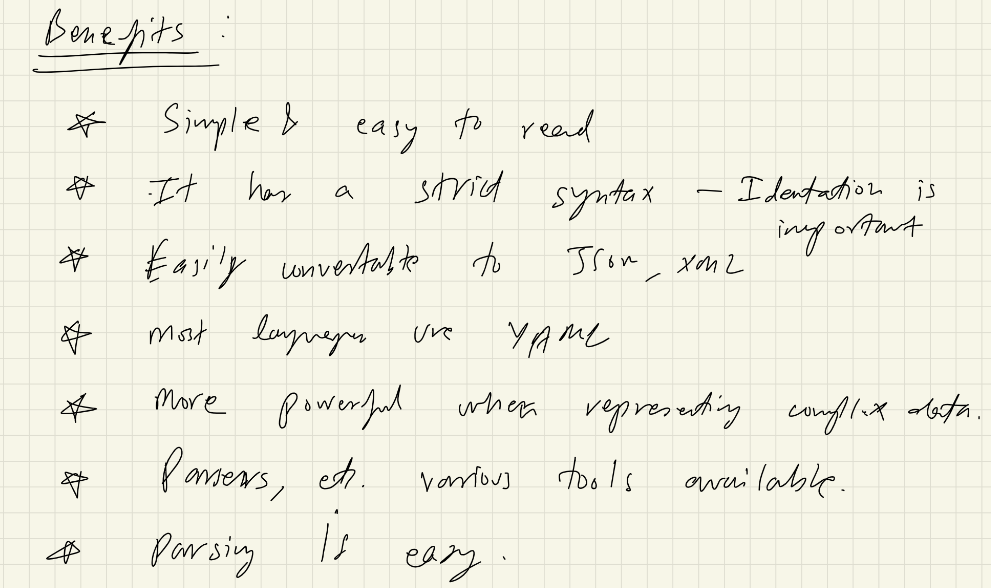 Benefits :
☆ Simple & easy to read
☆ It has a strict syntax — Identation is
important
☆ Easily convertable to JSon, XML
☆ most languages use YAML
☆ More powerful when representing complex data.
☆ Parsers, etc. various tools available.
☆ Parsing is easy.